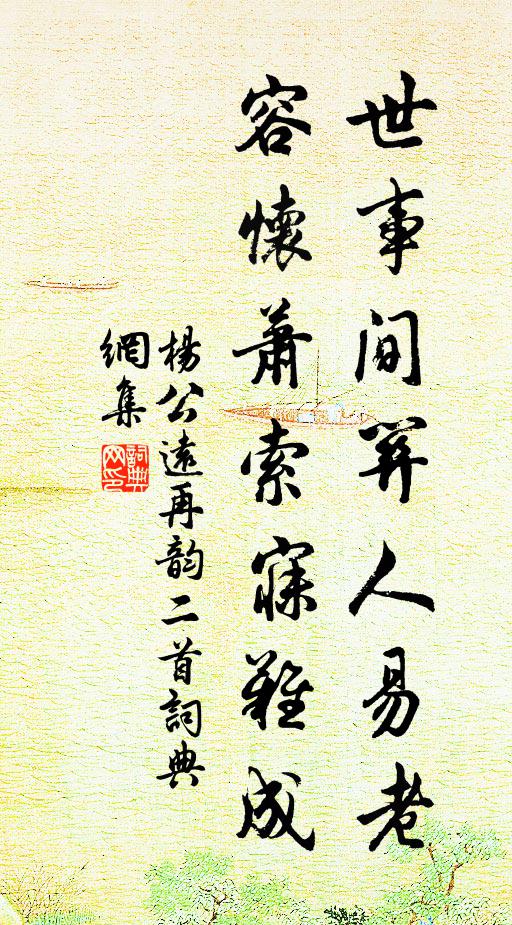 世事間筭人易老
容懷蕭索寐難成
楊公遠再韵二首詞典
網集
詞典
网印